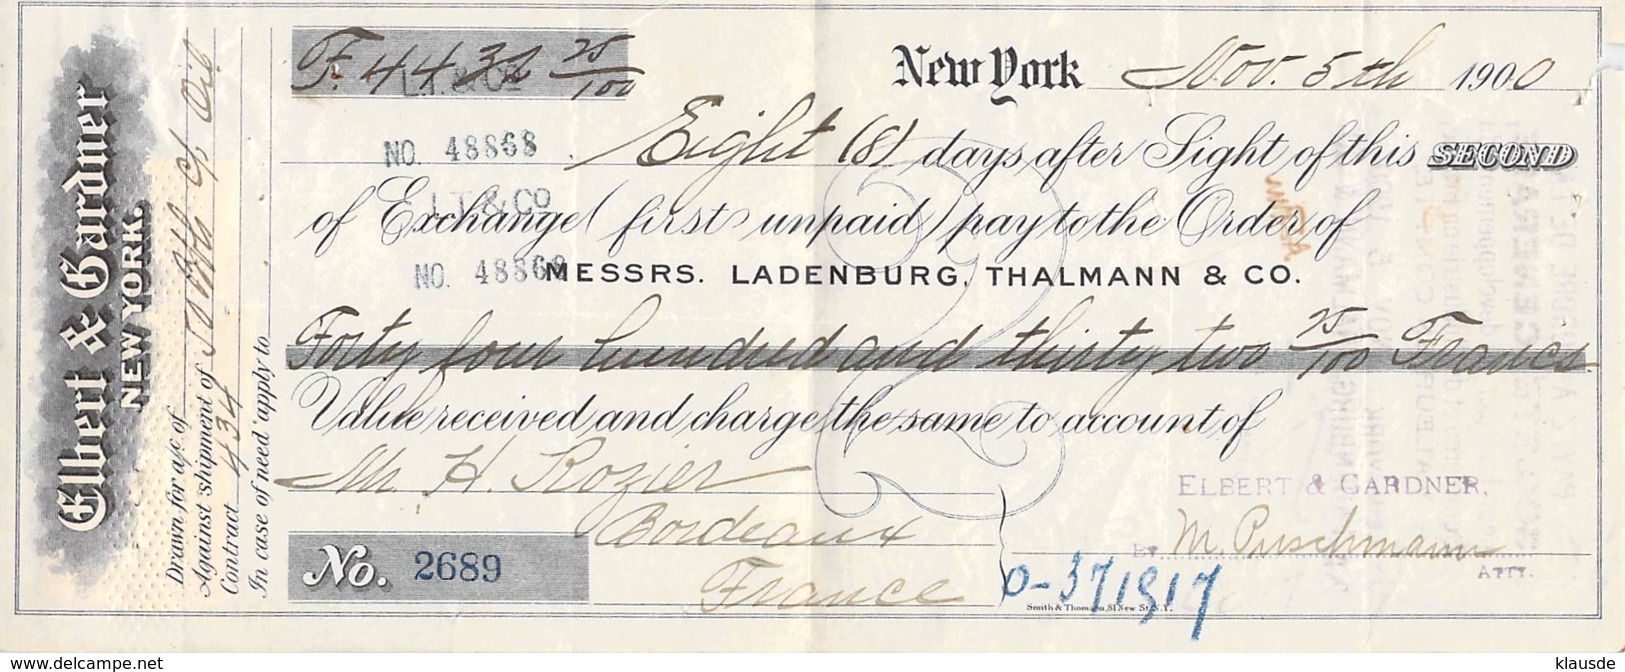 Elbert & Gardner
NEW YORK.
Drawn for a/c of
Against shipment of 50 Bbls C/S Oil
Contract 434
In case of need apply to
F. 4432 25/100
New York Nov. 5th 1900
NO. 48868
Eight (8) days after Sight of this SECOND
L.T. & CO
of Exchange (first unpaid) pay to the Order of
NO. 48868
MESSRS. LADENBURG, THALMANN & CO.
Forty four hundred and thirty two 25/100 Francs
Value received and charge the same to account of
Mr. H. Rozier
Bordeaux
France
ELBERT & GARDNER,
BY M. Puschmann
ATTY.
No. 2689
0-371917
Smith & Thomson, 51 New St. N.Y.
www.delcampe.net
klausde